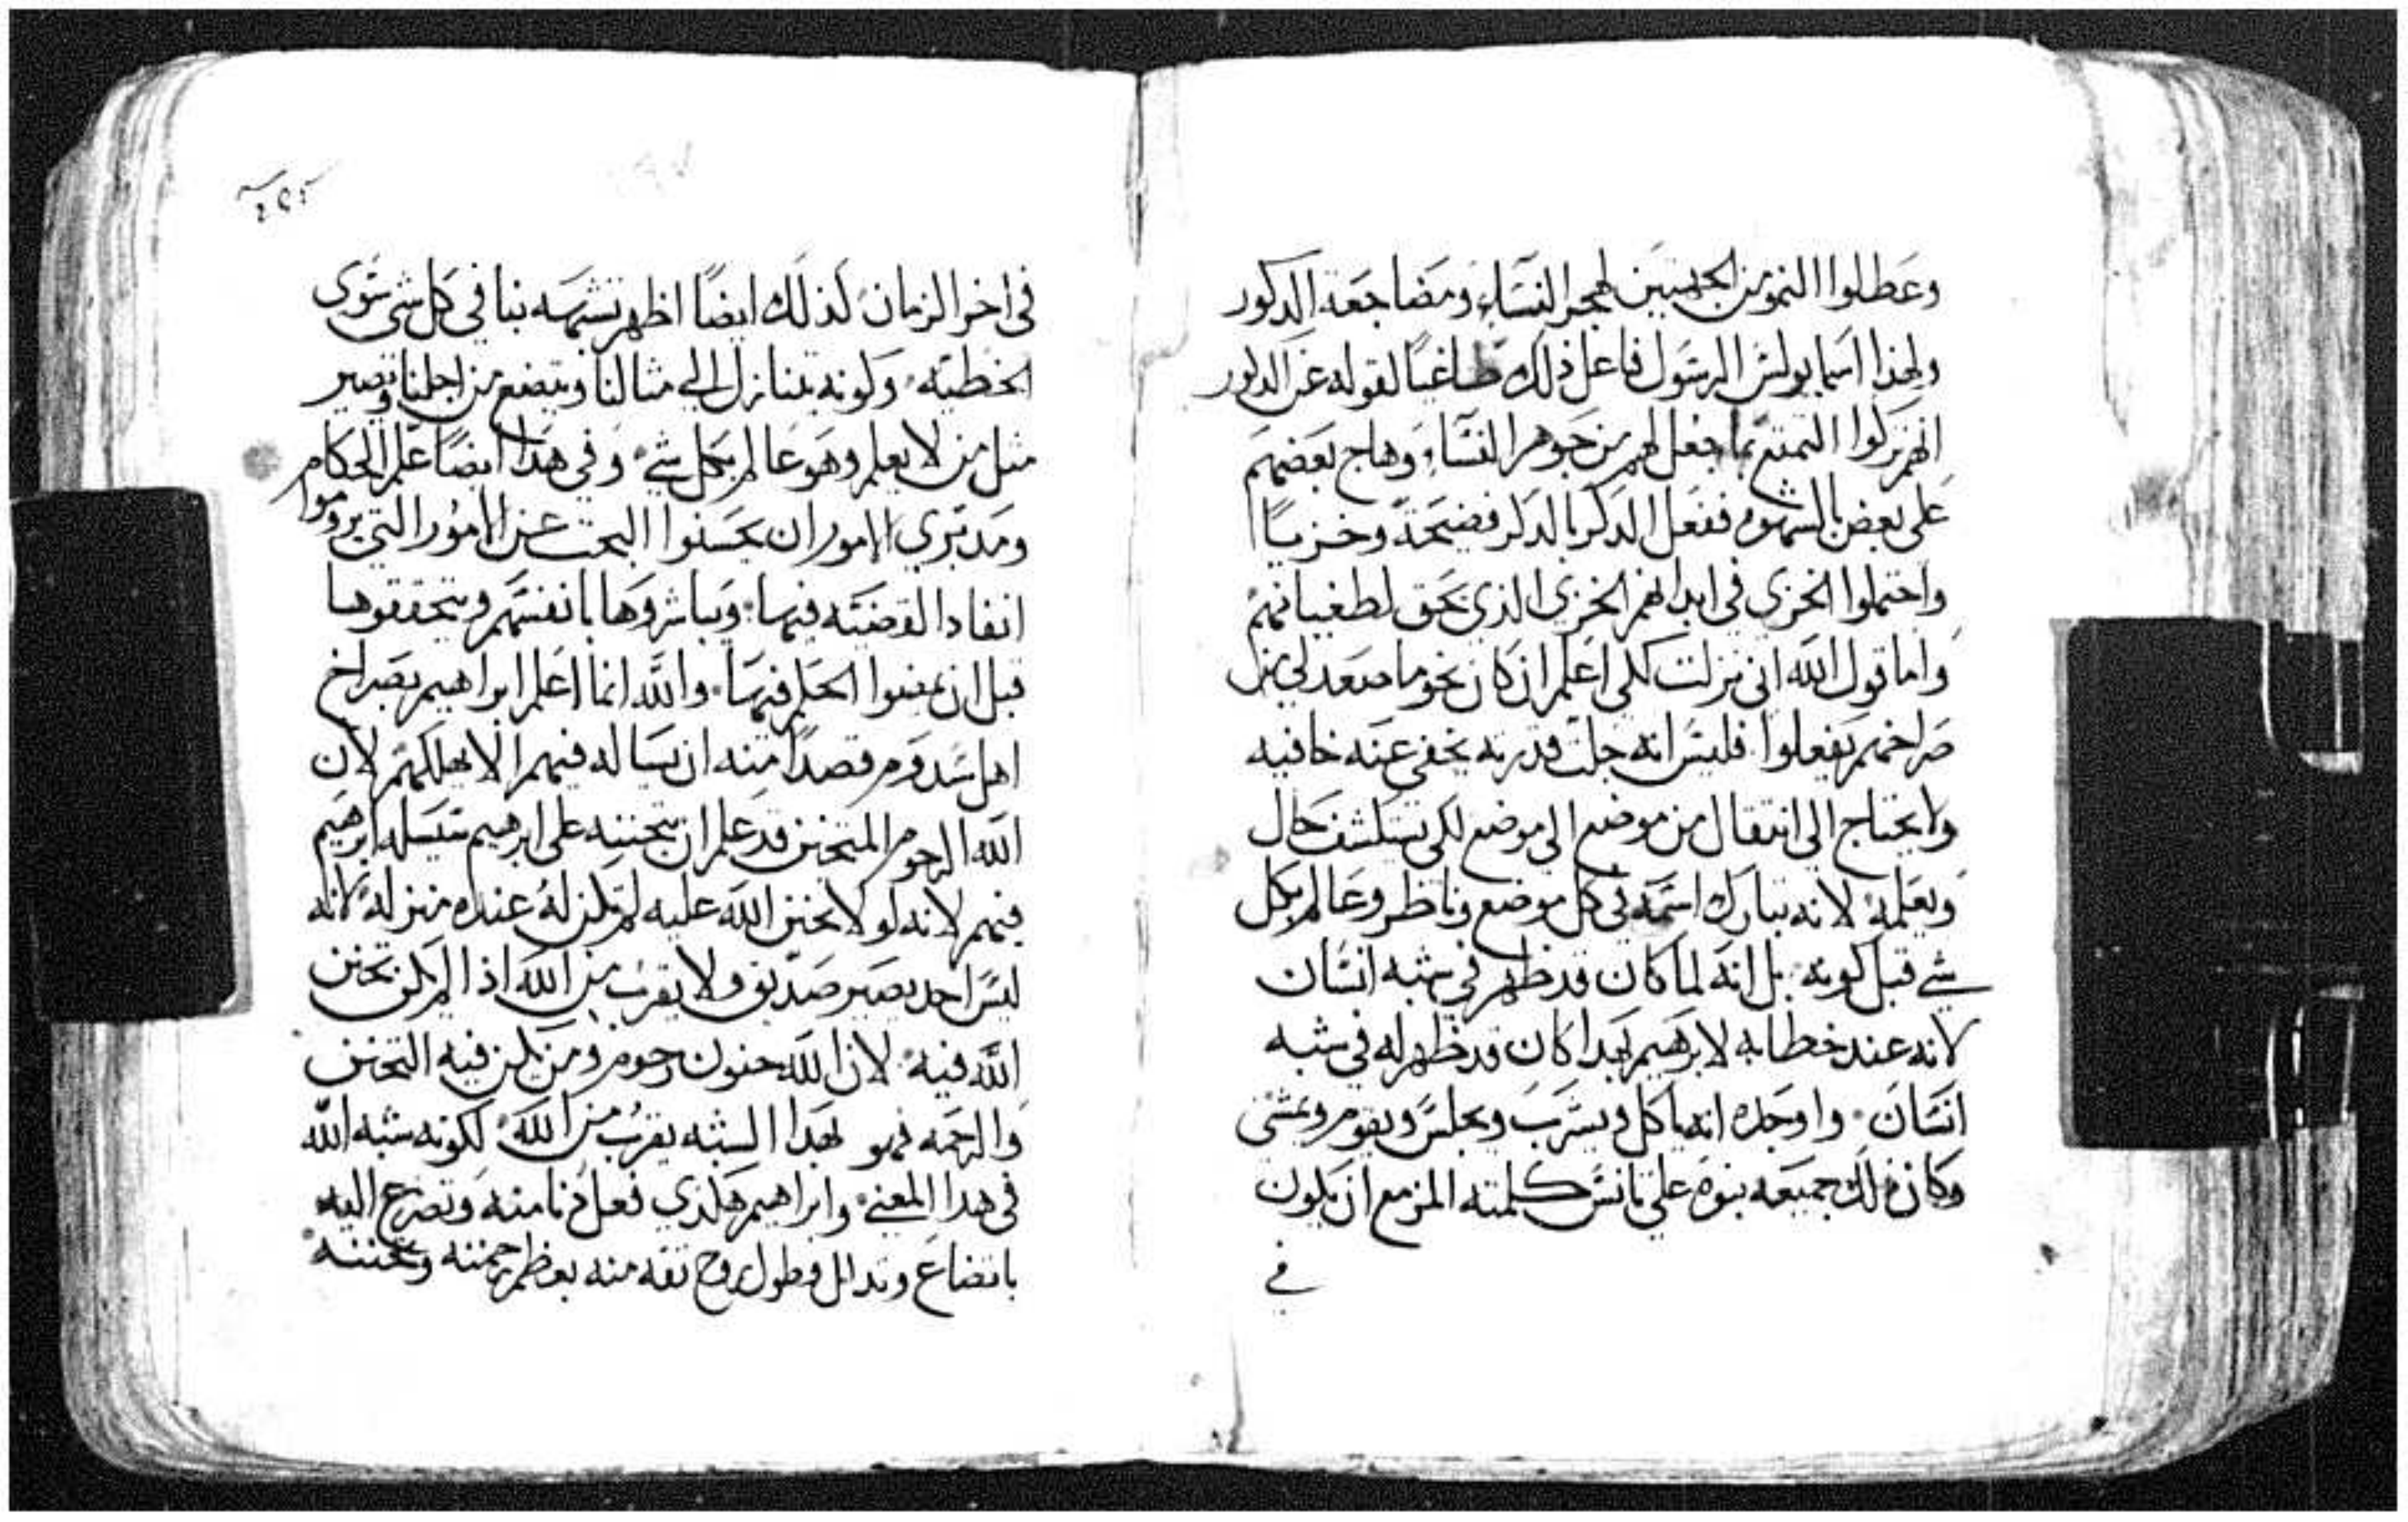 وعطلوا النمو من الجهتين لهجر النساء ومضاجعة الدكور
ولهذا اسما بولس الرسول فاعل ذلك طاغيا لقوله عن الدكور
انهم تركوا التمتع بما جعل لهم من جوهر النساء وهاج بعضهم
على بعض بالشهوه ففعل الدكر بالدكر فضيحة وخزيا
واحتملوا الخزى في ابدانهم الخزى الذي يحق لطغيانهم
واما قول الله انى نزلت لكى اعلم ان كان نحو ما صعد لي من
صراخهم يفعلوا فليس انه جلت قدرته يخفى عنه خافيه
ولا يحتاج الى انتقال من موضع الى موضع لكى يستكشف حال
ويعلمه لانه تبارك اسمه في كل موضع وناظر وعالم بكل
شي قبل كونه بل انه لما كان قد ظهر في شبه انسان
لانه عند خطابه لابرهيم بهدا كان قد ظهر له في شبه
انسان واوجده انه ياكل ويشرب ويجلس ويقوم ويمشي
وكان ذلك جميعه بنوه على تانس كلمته المزمع ان يكون
في
في اخر الزمان كذلك ايضا اظهر تشبهه بنا في كل شي سوى
الخطيه وكونه يتنازل الي مثالنا ويتضع من اجلنا ويصير
مثل من لا يعلم وهو عالم بكل شي وفي هدا ايضا علم الحكام
ومدبري الامور ان يحسنوا البحث عن الامور التي يروموا
انفاد القضيه فيها ويباشروها بانفسهم ويتحققوها
قبل ان يمضوا الحكم فيها والله انما اعلم ابراهيم بصراخ
اهل سدوم قصدا منه ان يساله فيهم الا يهلكهم لان
الله الرحوم المتحنن قد علم ان بتحننه على ابرهيم سيسله ابرهيم
فيهم لانه لولا تحنن الله عليه لم تكن له عنده منزله لانه
ليس احد يصير صديق ولا يقرب من الله اذا لم يكن تحنن
الله فيه لان الله حنون رحوم ومن يكن فيه التحنن
والرحمه فهو بهدا الشبه يقرب من الله لكونه شبه الله
في هدا المعنى وابراهيم هكذي فعل دنا منه وتضرع اليه
باتضاع وتدلل وطول روح ثقه منه بعظم رحمته وتحننه